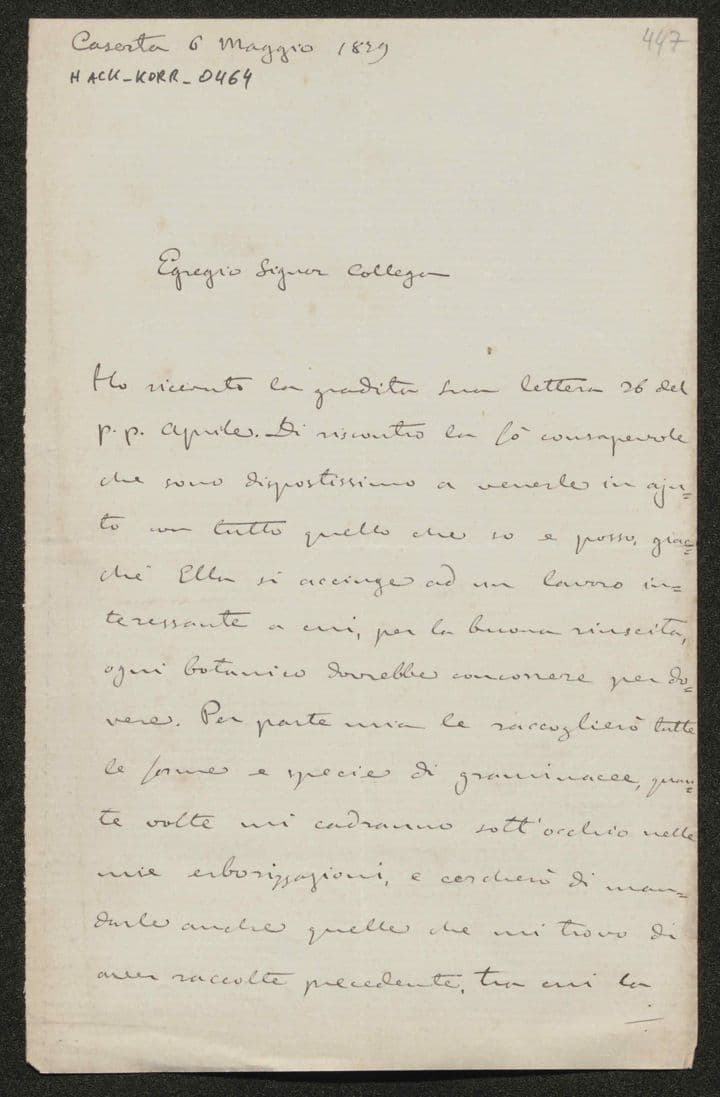 Caserta 6 Maggio 1879
447
HACK-KORR_0464
Egregio Signor Collega
Ho ricevuto la gradita sua lettera 26 del
p. p. Aprile. Di riscontro la fò consapevole
che sono dispostissimo a venirle in aju=
to con tutto quello che so e posso, giac=
chè Ella si accinge ad un lavoro in=
teressante a cui, per la buona riuscita,
ogni botanico dovrebbe concorrere per do=
vere. Per parte mia le raccoglierò tutte
le forme e specie di graminacee, quan=
te volte mi cadranno sott'occhio nelle
mie erborizzazioni, e cercherò di man=
darle anche quelle che mi trovo di
aver raccolte precedente, tra cui la